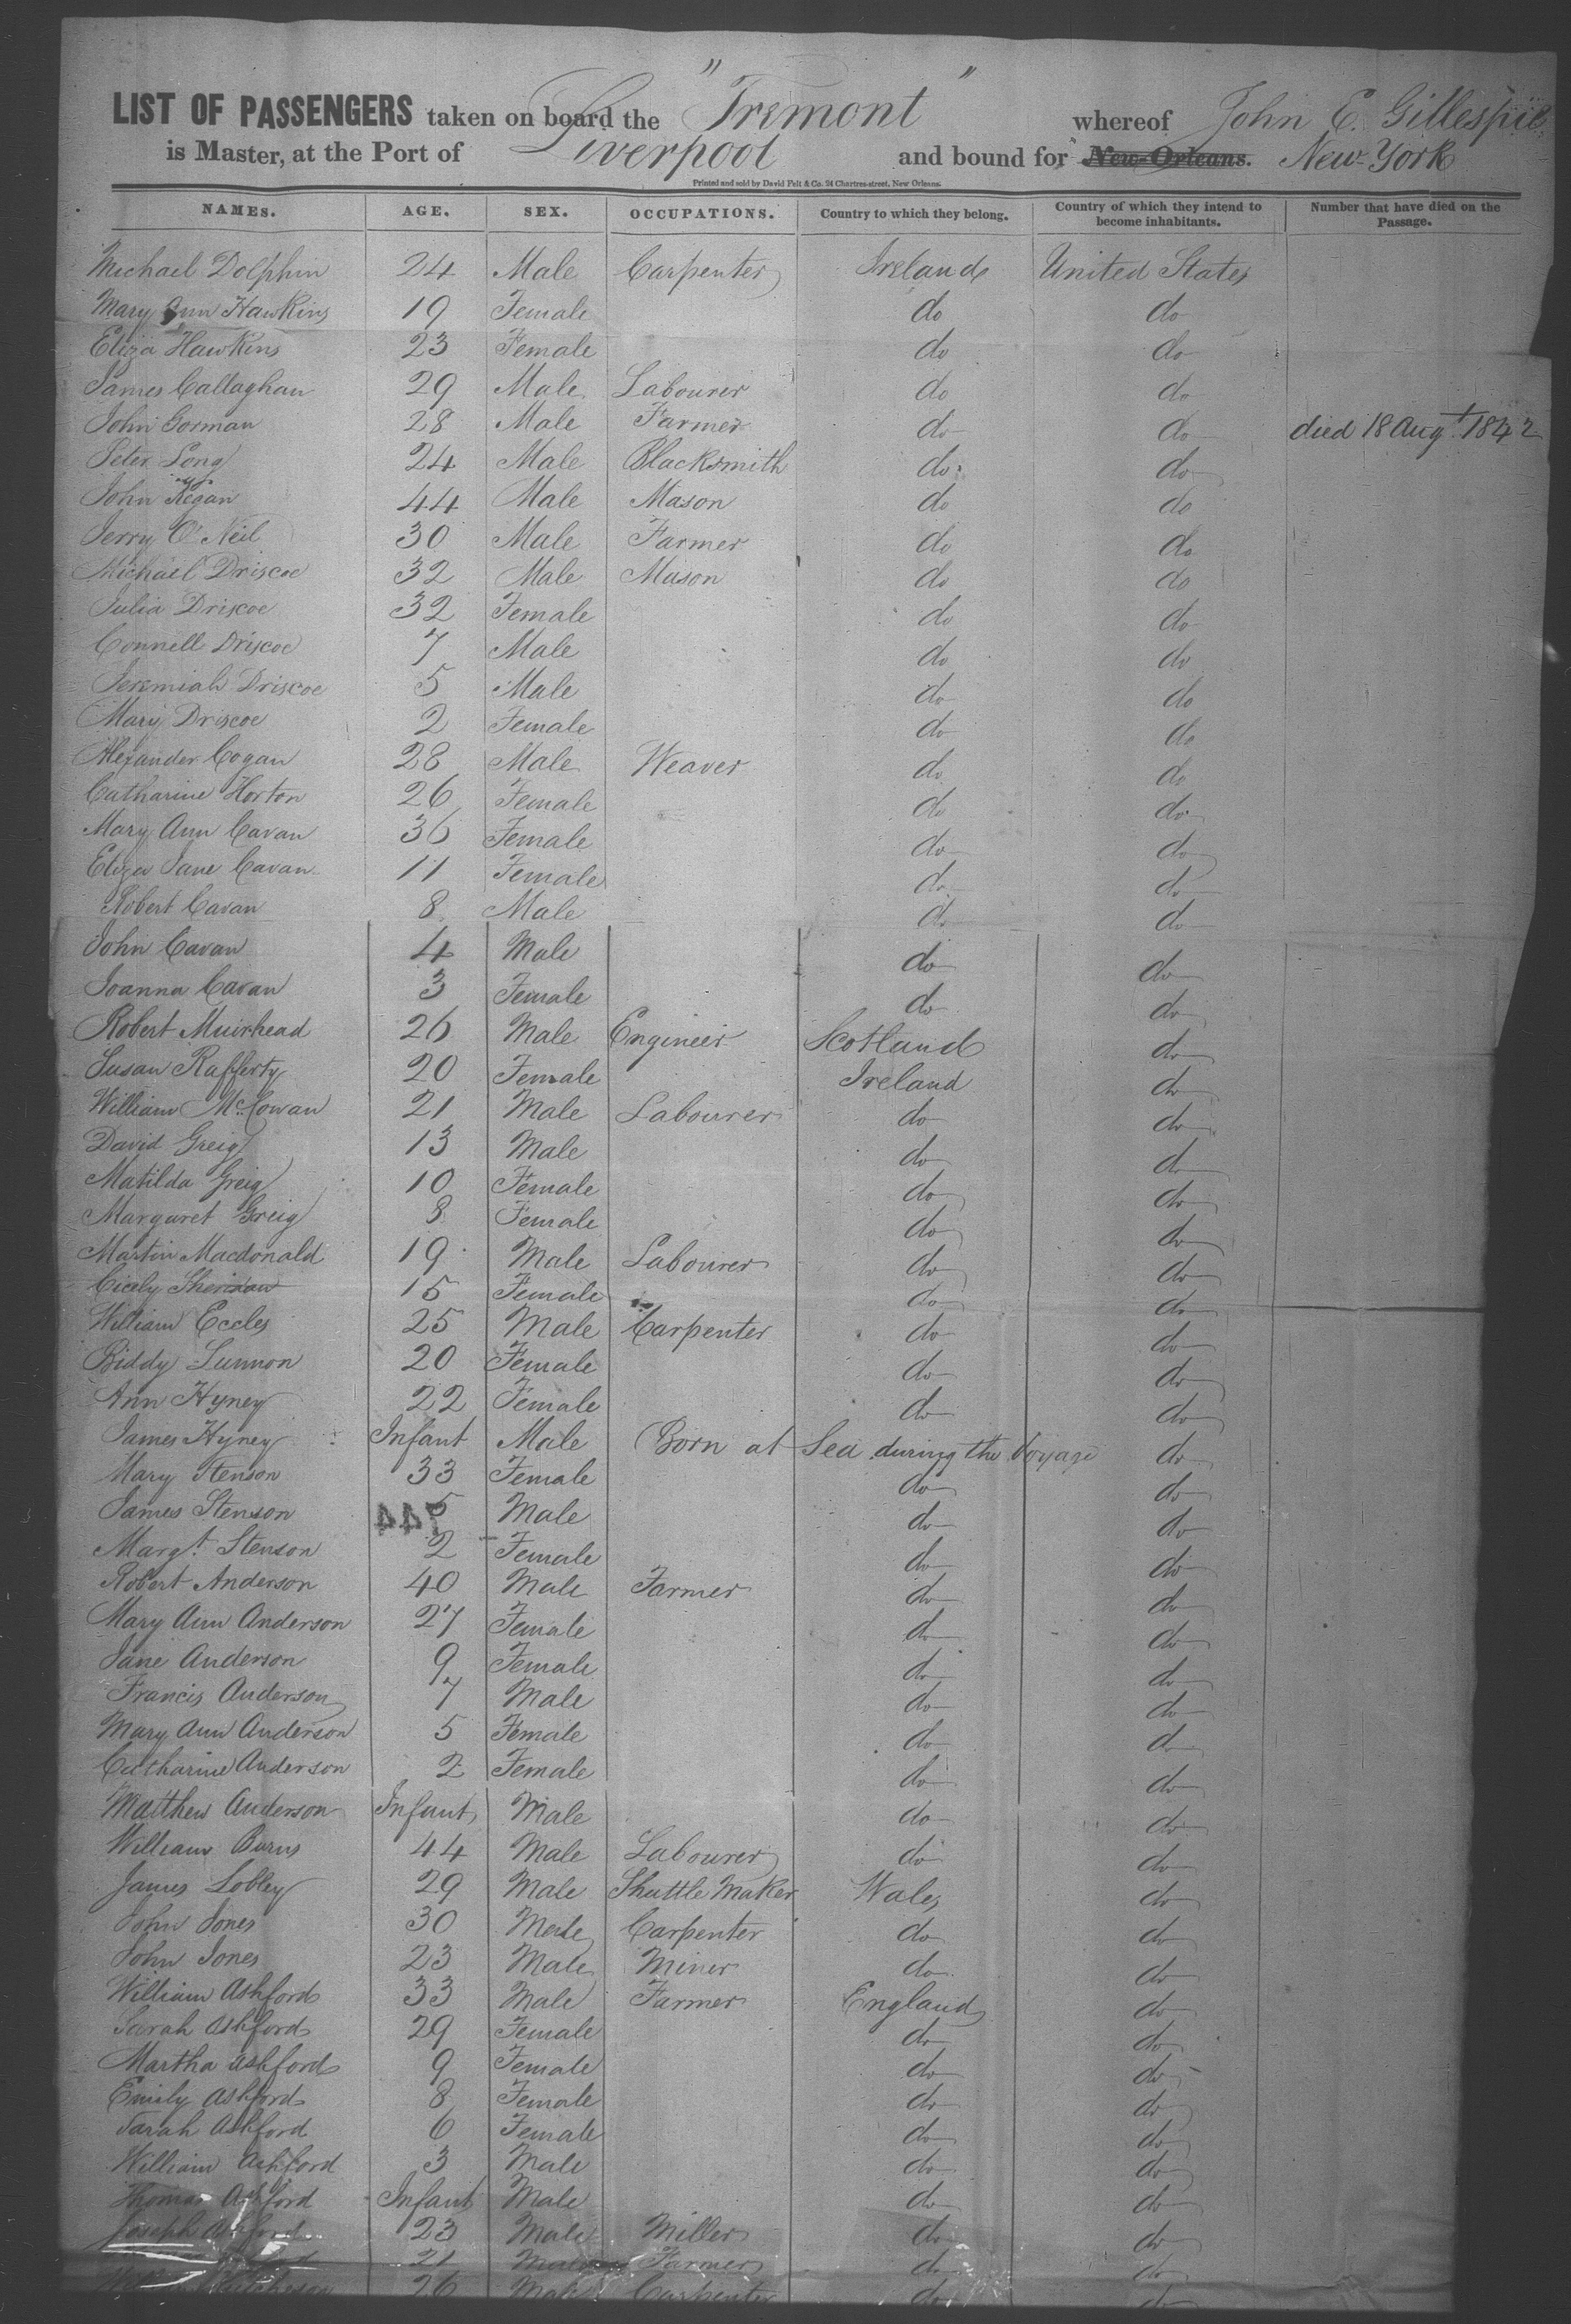 LIST OF PASSENGERS taken on board the "Tremont" whereof John E. Gillespie
is Master, at the Port of Liverpool and bound for New-Orleans. New-York
Printed and sold by David Felt & Co. 24 Chartres-street, New Orleans.
NAMES. AGE. SEX. OCCUPATIONS. Country to which they belong. Country of which they intend to become inhabitants. Number that have died on the Passage.
Michael Dolphin 24 Male Carpenter Ireland United States
Mary Ann Hawkins 19 Female do do
Eliza Hawkins 23 Female do do
James Callaghan 29 Male Labourer do do
John Gorman 28 Male Farmer do do died 18 Augt. 1842
Peter Long 24 Male Blacksmith do do
John Regan 44 Male Mason do do
Jerry O'Neil 30 Male Farmer do do
Michael Driscoe 32 Male Mason do do
Julia Driscoe 32 Female do do
Connell Driscoe 7 Male do do
Jeremiah Driscoe 5 Male do do
Mary Driscoe 2 Female do do
Alexander Cogan 28 Male Weaver do do
Catharine Horton 26 Female do do
Mary Ann Cavan 36 Female do do
Eliza Jane Cavan 11 Female do do
Robert Cavan 8 Male do do
John Cavan 4 Male do do
Joanna Cavan 3 Female do do
Robert Muirhead 26 Male Engineer Scotland do
Susan Rafferty 20 Female Ireland do
William McCowan 21 Male Labourer do do
David Greig 13 Male do do
Matilda Greig 10 Female do do
Margaret Greig 8 Female do do
Martin Macdonald 19 Male Labourer do do
Cicely Sheridan 15 Female do do
William Eccles 25 Male Carpenter do do
Biddy Lunnon 20 Female do do
Ann Hyney 22 Female do do
James Hyney Infant Male Born at Sea during the Voyage do
Mary Stenson 33 Female do do
James Stenson 5 Male do do
744
Margt. Stenson 2 Female do do
Robert Anderson 40 Male Farmer do do
Mary Ann Anderson 27 Female do do
Jane Anderson 9 Female do do
Francis Anderson 7 Male do do
Mary Ann Anderson 5 Female do do
Catharine Anderson 2 Female do do
Matthew Anderson Infant Male do do
William Burns 44 Male Labourer do do
James Lobley 29 Male Shuttle Maker Wales do
John Jones 30 Male Carpenter do do
John Jones 23 Male Miner do do
William Ashford 33 Male Farmer England do
Sarah Ashford 29 Female do do
Martha Ashford 9 Female do do
Emily Ashford 8 Female do do
Sarah Ashford 6 Female do do
William Ashford 3 Male do do
Thomas Ashford Infant Male do do
Joseph Ashford 23 Male Miller do do
21 Male Farmer do do
26 Male Carpenter do do